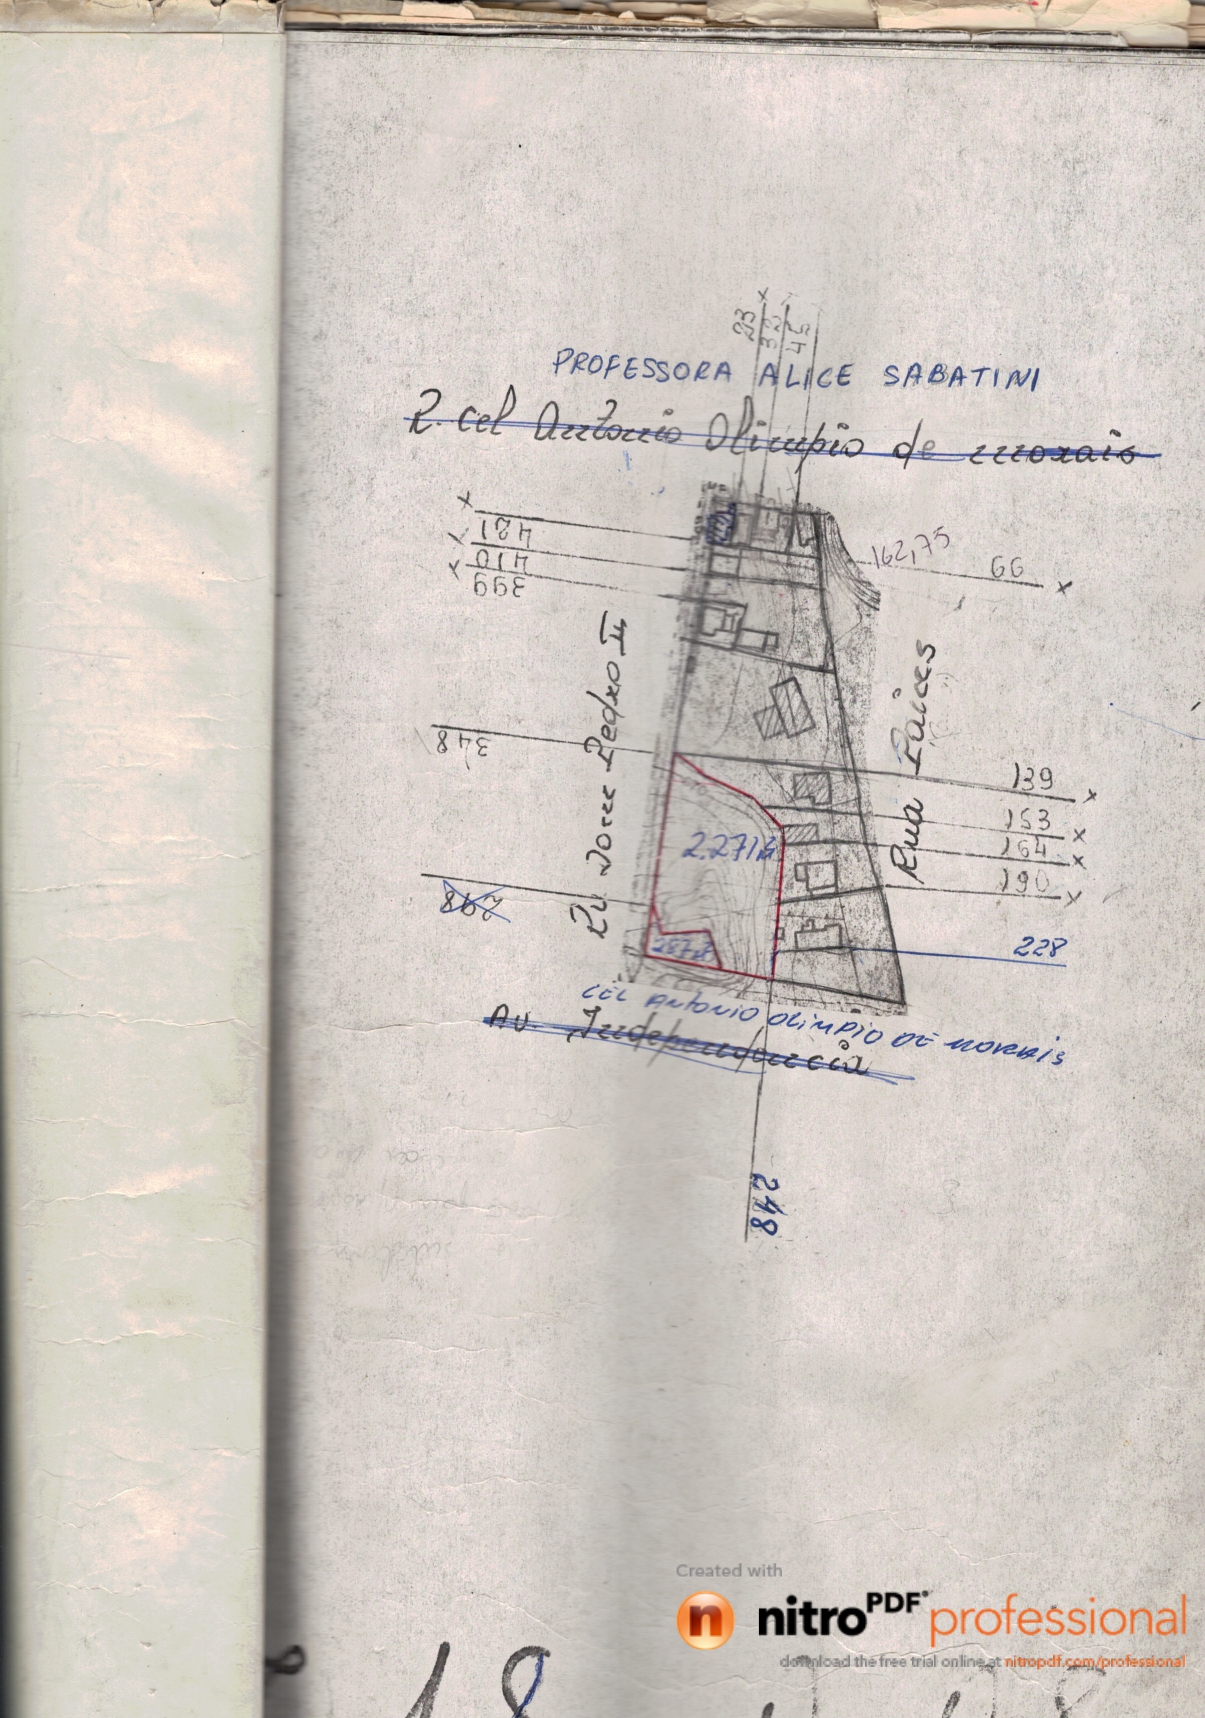 23
32
45
PROFESSORA ALICE SABATINI
R. cel Antonio Olimpio de morais
421
410
399
162,75
66
348
139
153
164
190
228
Rua
2.271
248
CEL ANTONIO OLIMPIO DE MORAIS
Av. Independencia
298
Pedro II
248
Created with
nitroPDF professional
download the free trial online at nitropdf.com/professional
18